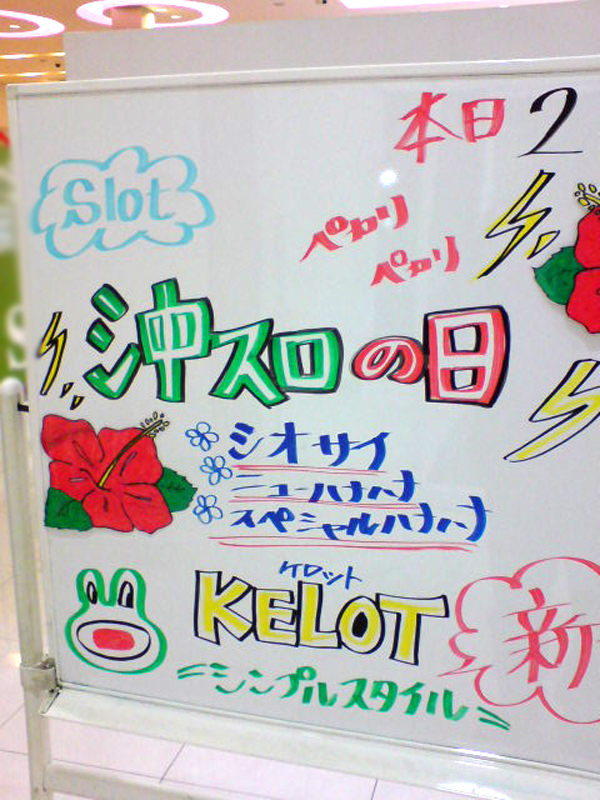 本日2
Slot
ペカリ
ペカリ
沖スロの日
シオサイ
ニューハナハナ
スペシャルハナハナ
ケロット
KELOT
新
=シンプルスタイル=